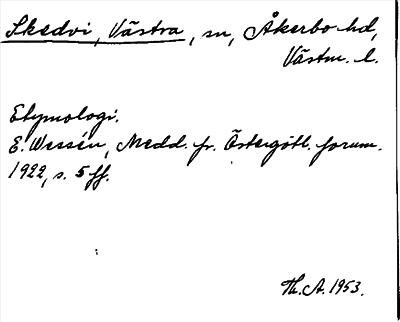 Skedvi, Västra, sn, Åkerbo hd,
Västm. l.
Etymologi.
E. Wessén, Medd. fr. Östergötl. fornm.
1922, s. 5 ff.
Th. A. 1953.